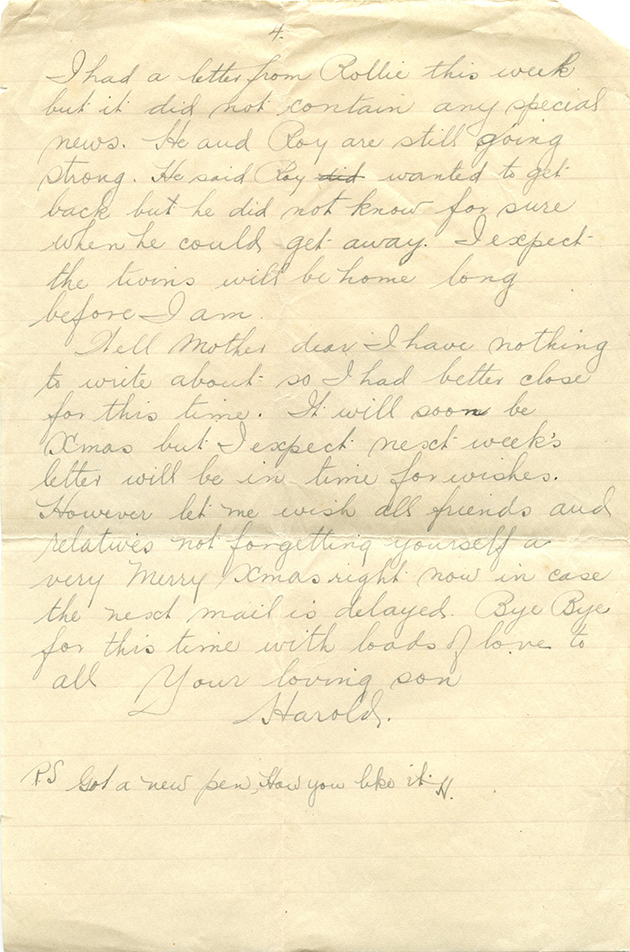 4.
I had a letter from Rollie this week
but it did not contain any special
news. He and Roy are still going
strong. He said Roy did wanted to get
back but he did not know for sure
when he could get away. I expect
the twins will be home long
before I am.
Well Mother dear I have nothing
to write about so I had better close
for this time. It will soon be
Xmas but I expect next week's
letter will be in time for wishes.
However let me wish all friends and
relatives not forgetting yourself a
very Merry Xmas right now in case
the next mail is delayed. Bye Bye
for this time with loads of love to
all Your loving son
Harold.
PS Got a new pen, How you like it H.